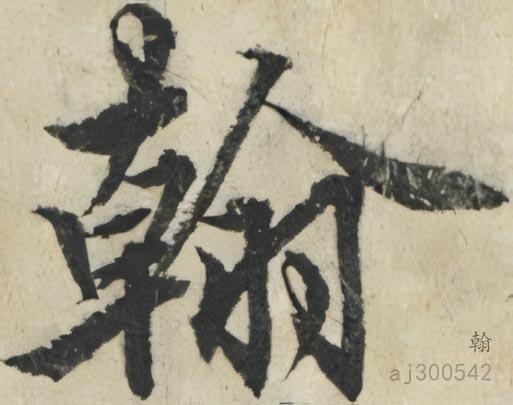 翰
翰
aj300542